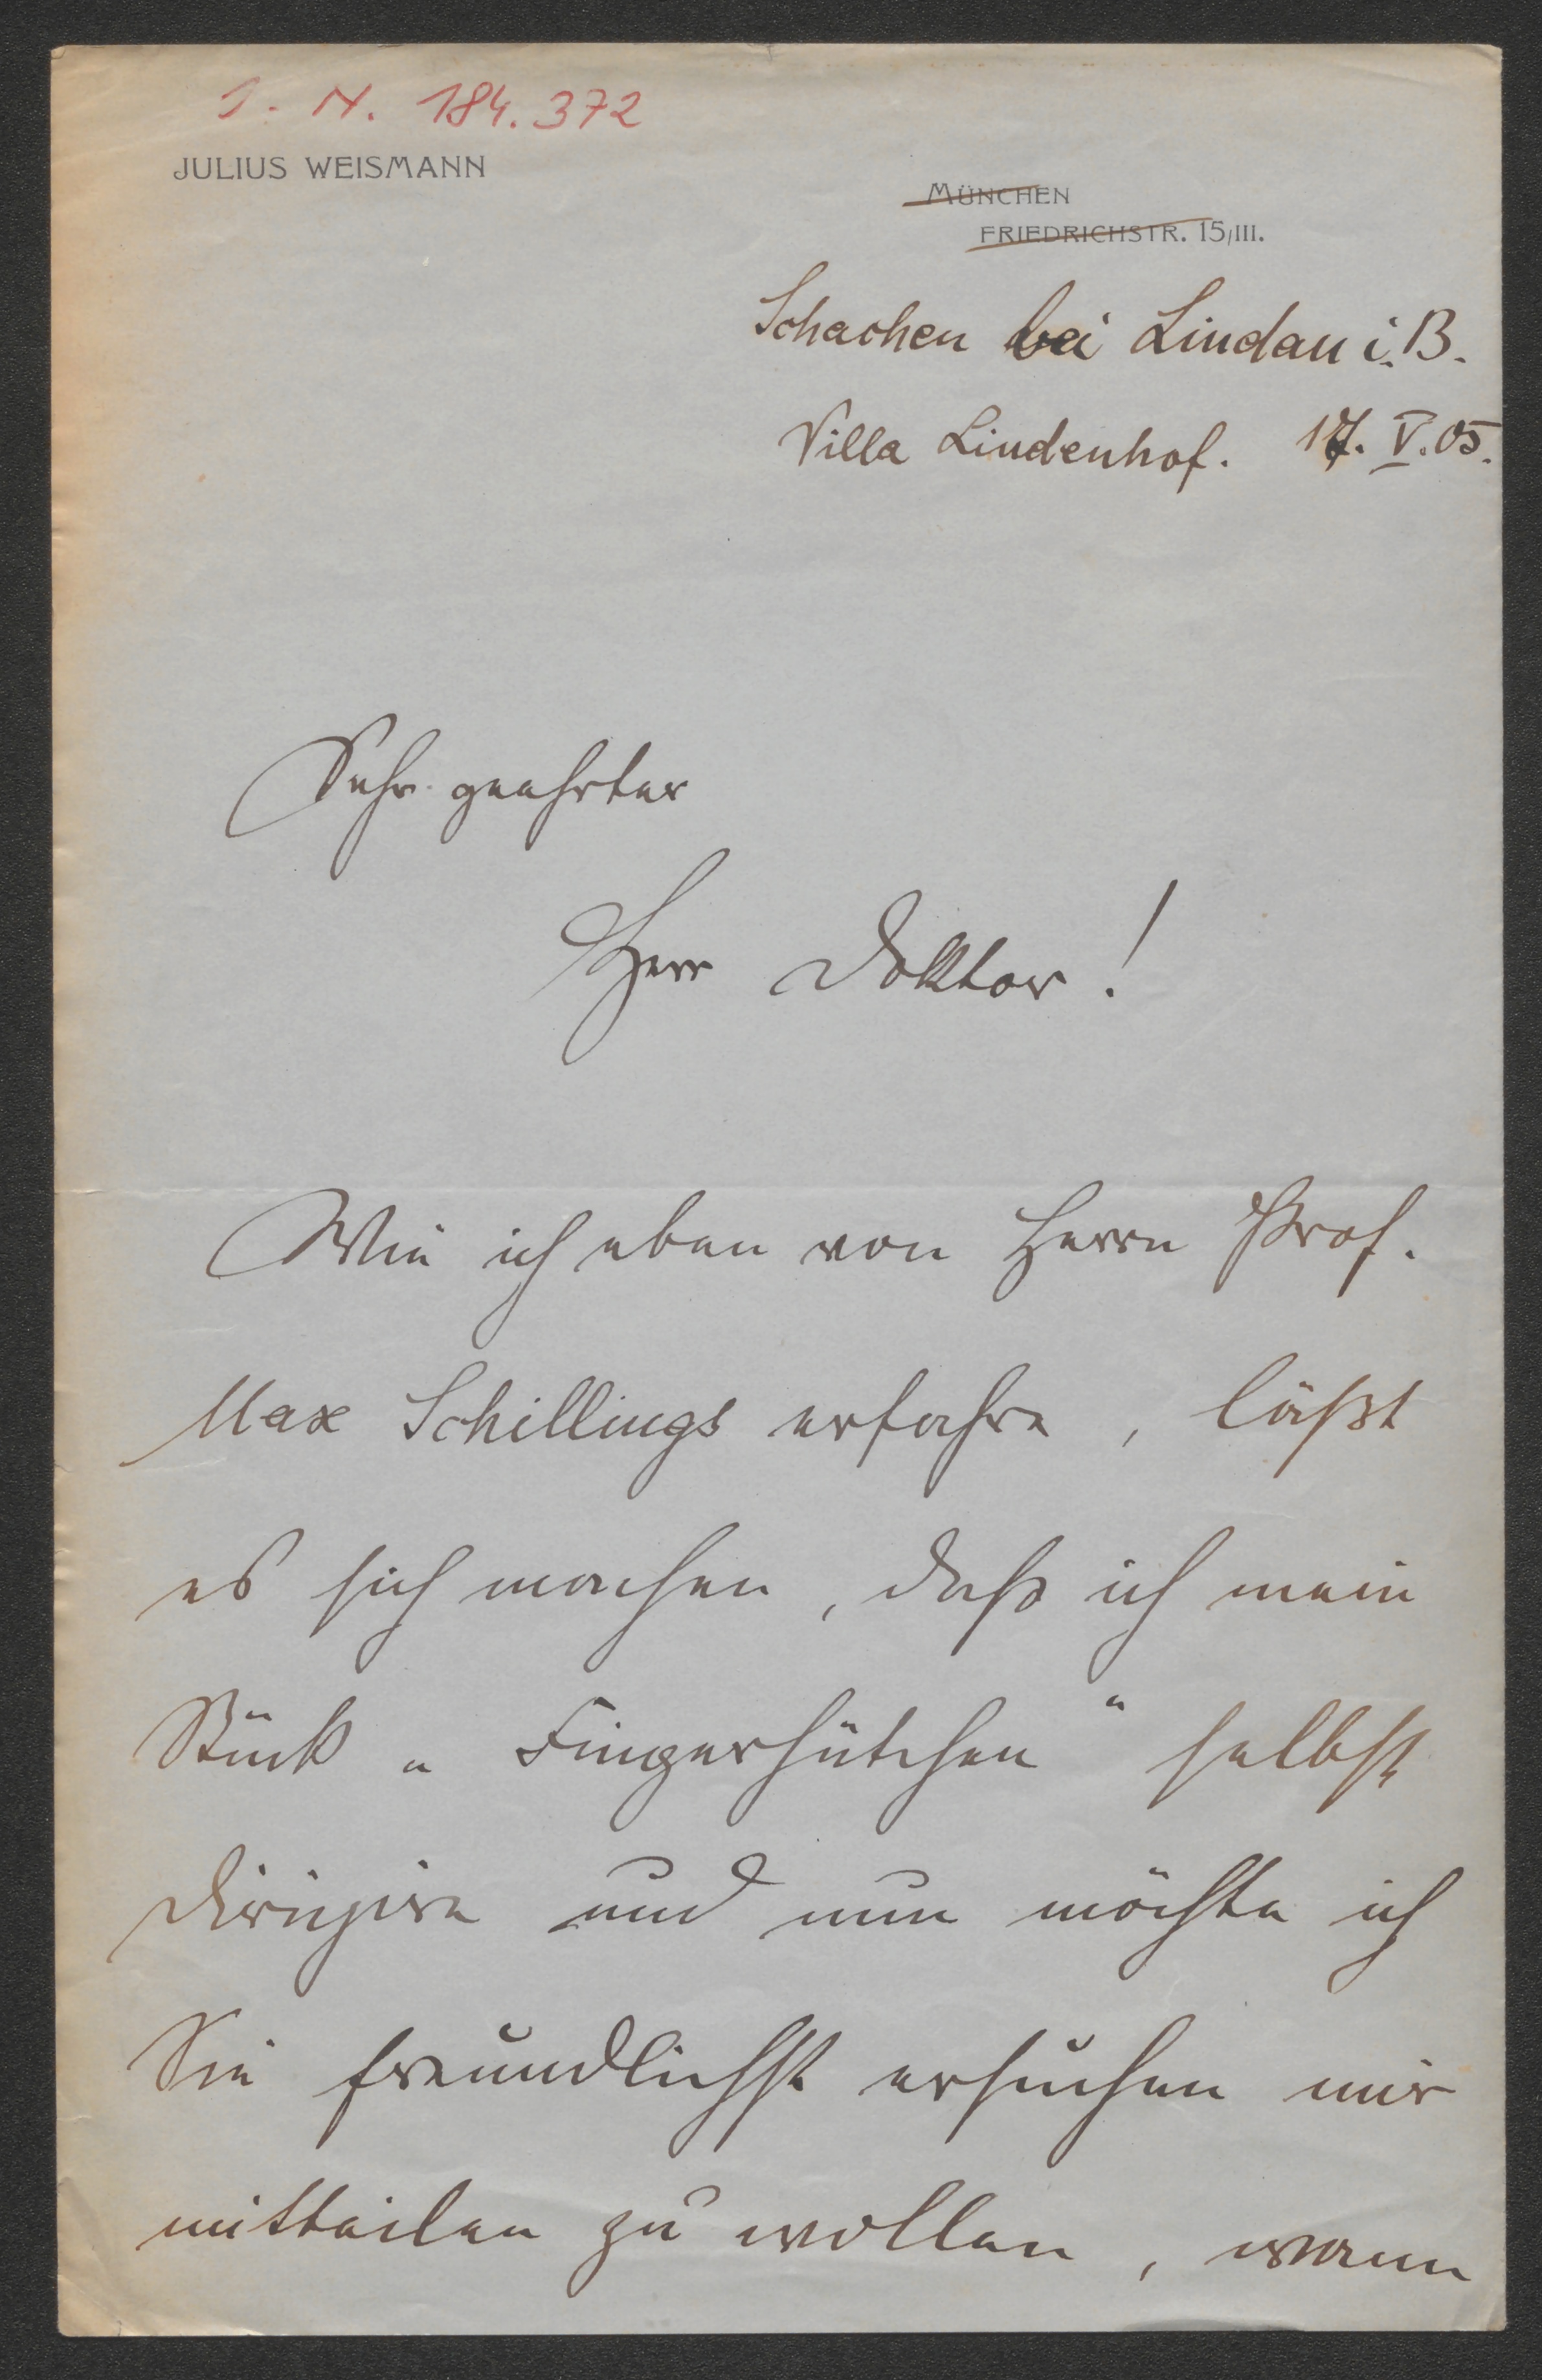 I. N. 184.372
JULIUS WEISMANN
MÜNCHEN
FRIEDRICHSTR. 15/III.
Schachen bei Lindau i. B.
Villa Lindenhof. 17. V. 05.
Sehr geehrter
Herr Doktor!
Wie ich eben von Herrn Prof.
Max Schillings erfahre, läßt
es sich machen, daß ich mein
Stück „Fingerhütchen“ selbst
dirigire und nun möchte ich
Sie freundlichst ersuchen mir
mitteilen zu wollen, wann